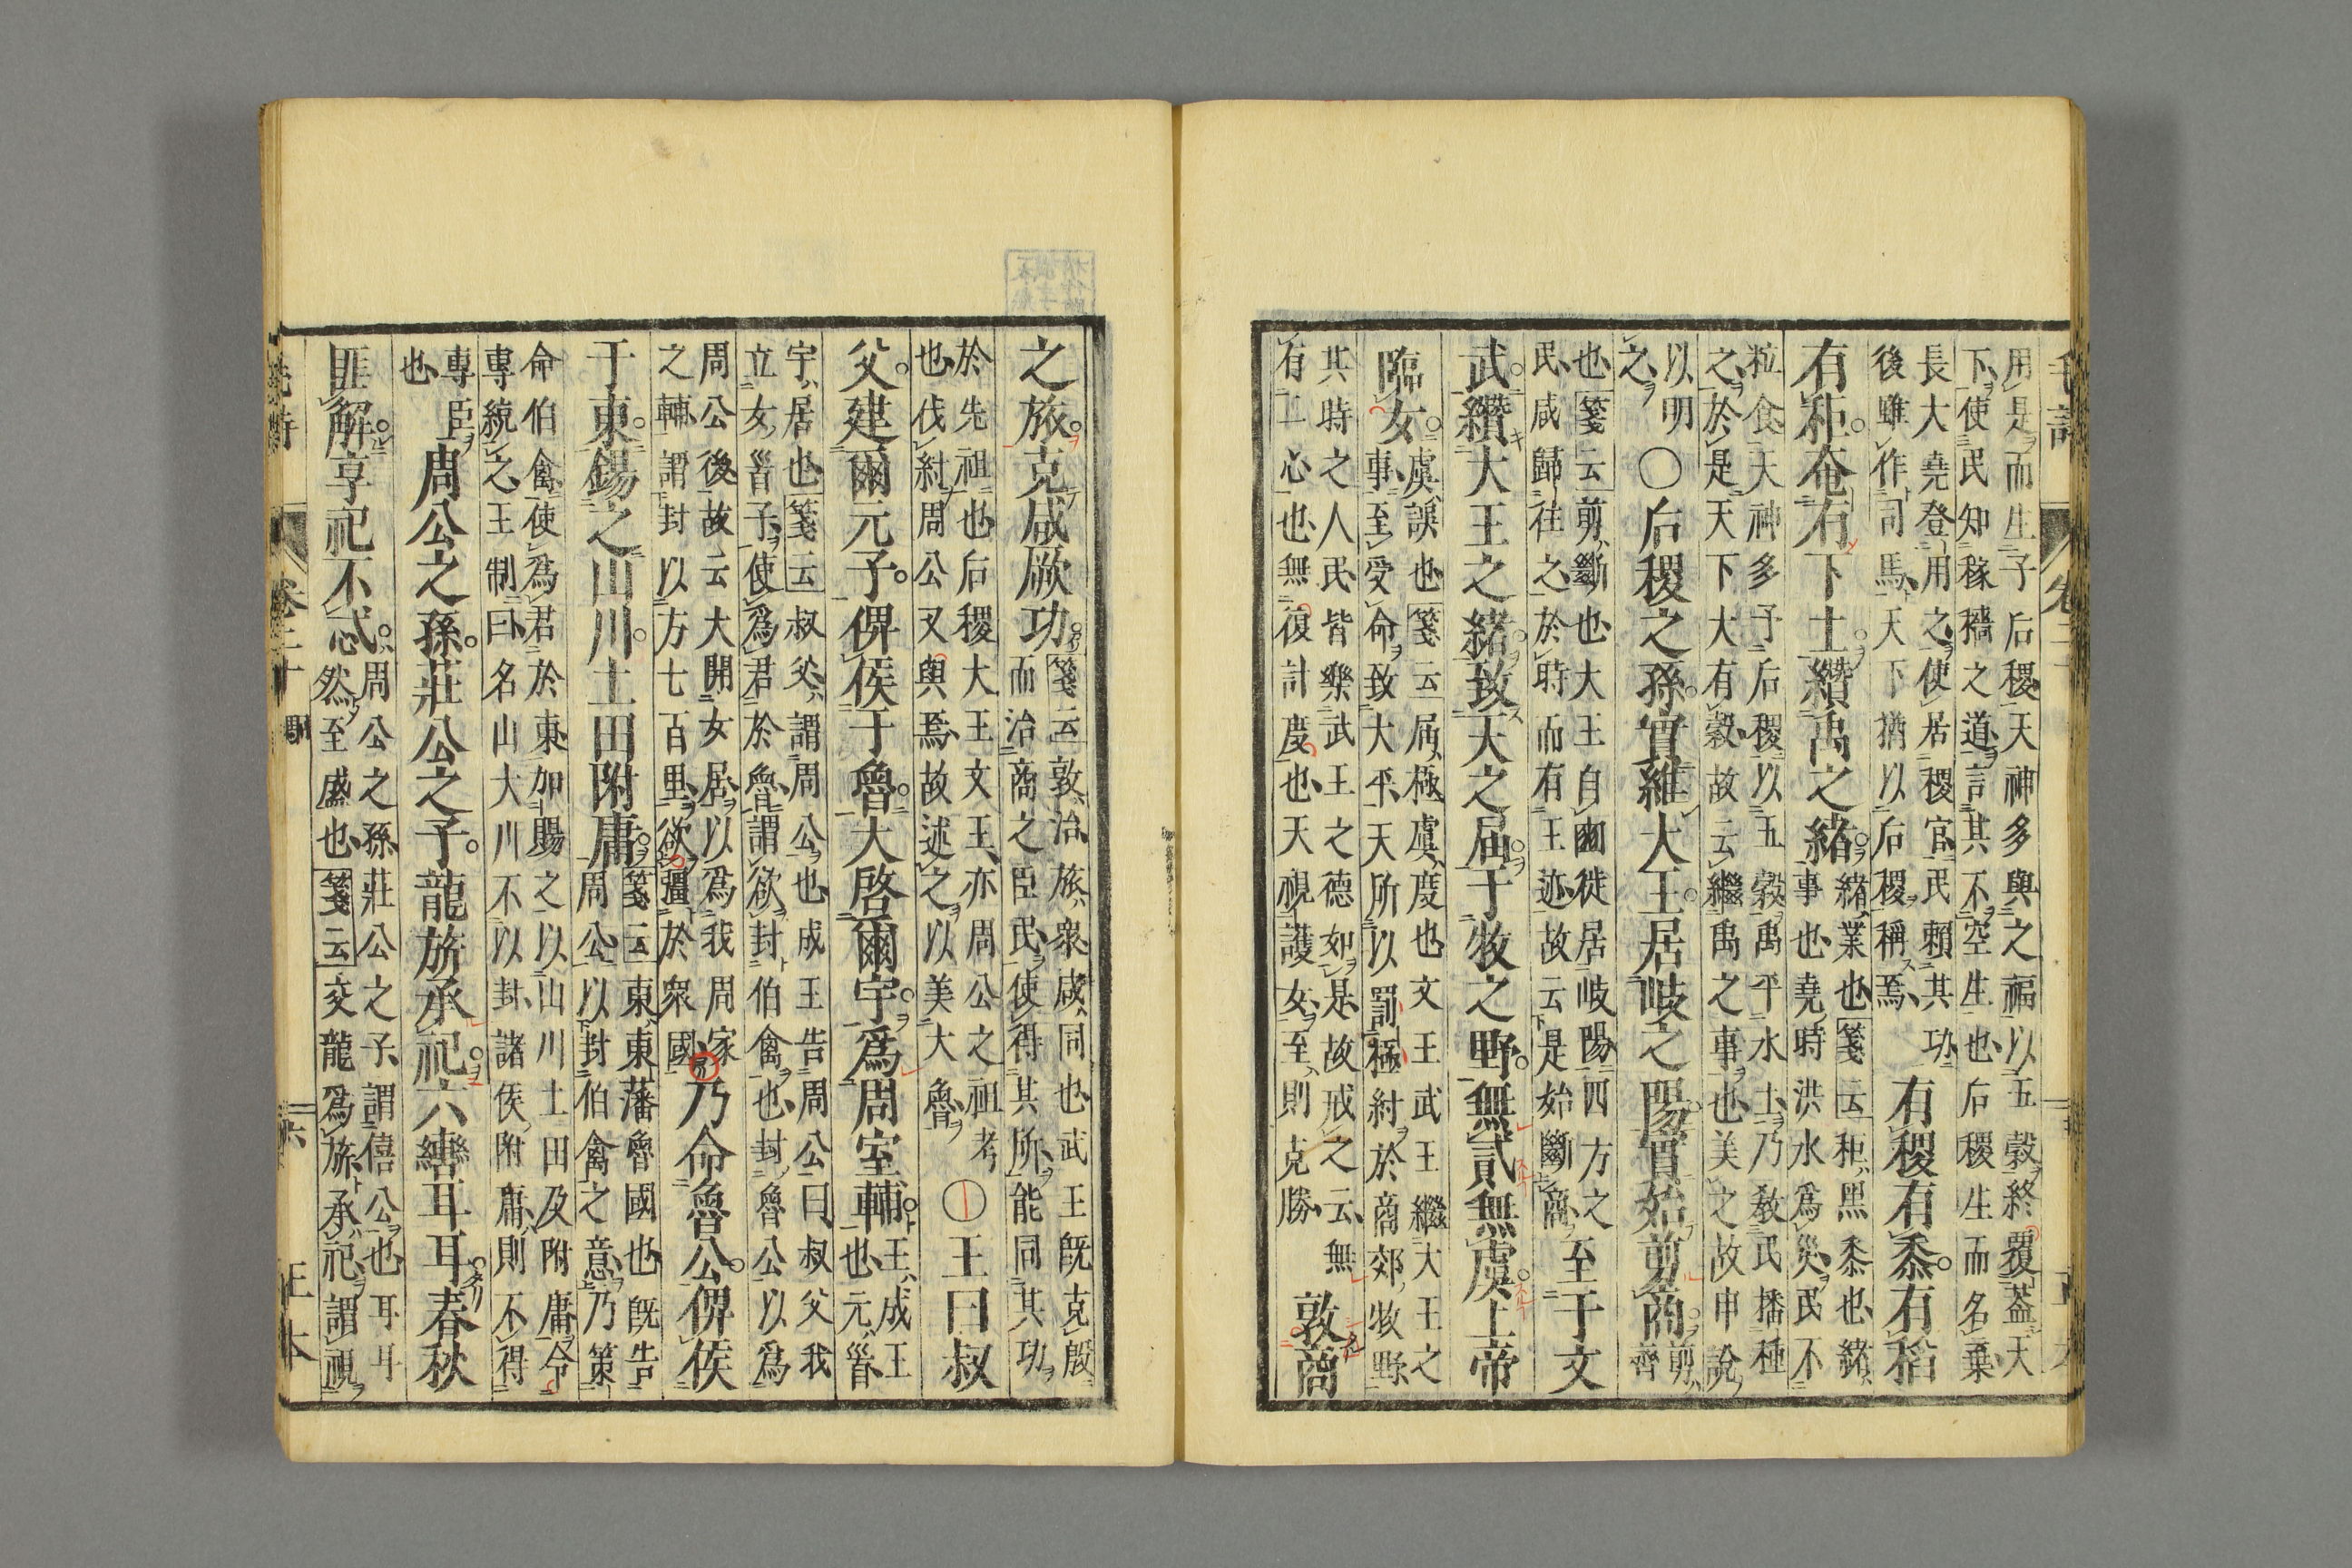 毛詩 卷二十
用是而生子后稷天神多與之福以五穀終覆蓋天
下使民知稼穡之道言其不空生也后稷生而名棄
長大堯登用之使居稷官民賴其功
後雖作司馬天下猶以后稷稱焉
有稷有黍有稻
有秬奄有下土纘禹之緒
緒業也箋云秬黑黍也緒
事也堯時洪水爲災民不
粒食天神多予后稷以五穀禹平水土乃敎民播種
之於是天下大有穀故云繼禹之事也美之故申說
以明
之
○后稷之孫實維大王居岐之陽實始剪商
剪齊
也箋云剪斷也大王自豳徙居岐陽四方之
民咸歸往之於時而有王迹故云是始斷商
至于文
武纘大王之緒致天之屆于牧之野無貳無虞上帝
臨女
虞誤也箋云屆極虞度也文王武王繼大王之
事至受命致大平天所以罰極紂於商郊牧野
其時之人民皆樂武王之德如是故戒之云無
有二心也無復計度也天視護女至則克勝
敦商
之旅克咸厥功
箋云敦治旅衆咸同也武王旣克殷
而治商之臣民使得其所能同其功
於先祖也后稷大王文王亦周公之祖考
也伐紂周公又與焉故述之以美大魯
○王曰叔
父建爾元子俾侯于魯大啓爾宇爲周室輔
王成王
也元首
宇居也箋云叔父謂周公也成王告周公曰叔父我
立女首子使爲君於魯謂欲封伯禽也封魯公以爲
周公後故云大開女居以爲我周家
之輔謂封以方七百里欲彊於衆國
乃命魯公俾侯
于東錫之山川土田附庸
箋云東東藩魯國也旣告
周公以封伯禽之意乃策
命伯禽使爲君於東加賜之以山川土田及附庸令
專統之王制曰名山大川不以封諸侯附庸則不得
專臣
也
周公之孫莊公之子龍旂承祀六轡耳耳春秋
匪解享祀不忒
周公之孫莊公之子謂僖公也耳耳
然至盛也箋云交龍爲旂承祀謂視
毛詩 卷二十 六